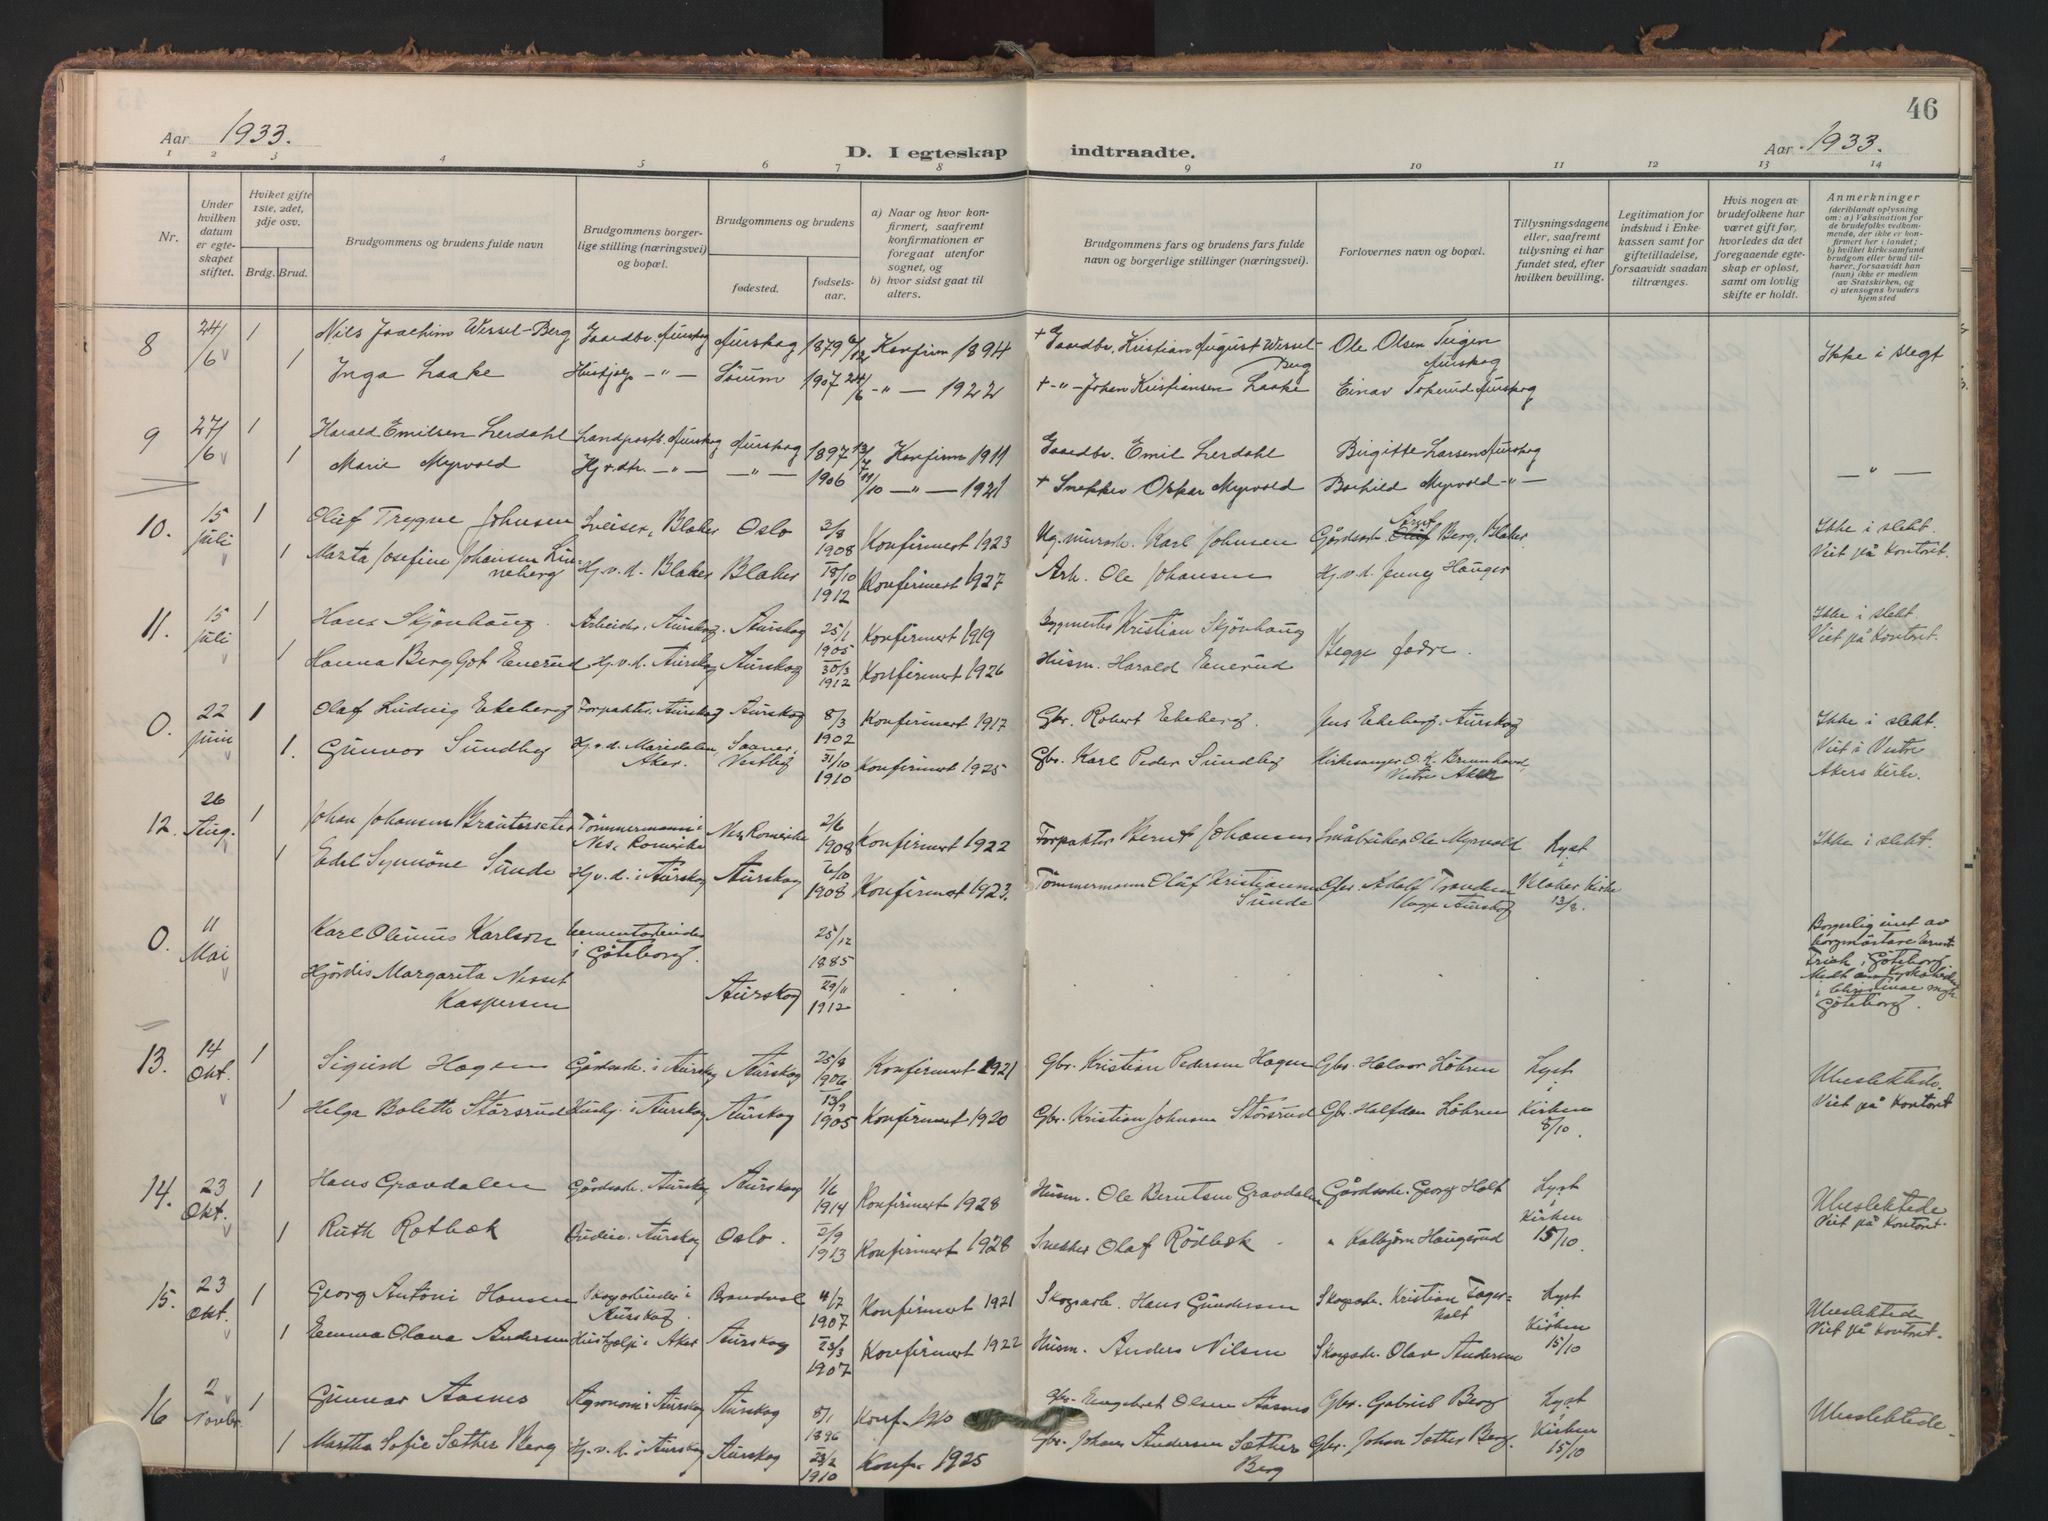 Aar 1933.
D. I egteskap indtraadte.
Aar 1933.
46
1 2 3 4 5 6 7 8 9 10 11 12 13 14
Nr.
Under hvilken datum er egteskapet stiftet.
Hviket gifte 1ste, 2det, 3dje osv.
Brdg. Brud.
Brudgommens og brudens fulde navn
Brudgommens borgerlige stilling (næringsvei) og bopæl.
Brudgommens og brudens
fødested.
fødselsaar.
a) Naar og hvor konfirmert, saafremt konfirmationen er foregaat utenfor sognet, og
b) hvor sidst gaat til alters.
Brudgommens fars og brudens fars fulde navn og borgerlige stillinger (næringsvei).
Forlovernes navn og bopæl.
Tillysningsdagene eller, saafremt tillysning ei har fundet sted, efter hvilken bevilling.
Legitimation for indskud i Enkekassen samt for giftetilladelse, forsaavidt saadan tiltrænges.
Hvis nogen av brudefolkene har været gift før, hvorledes da det foregaaende egteskap er opløst, samt om lovlig skifte er holdt.
Anmerkninger
(deriblandt oplysning om: a) Vaksination for de brudefolks vedkommende, der ikke er konfirmert her i landet; b) hvilket kirkesamfund brudgom eller brud tilhører, forsaavidt han (hun) ikke er medlem av Statskirken, og c) utensogns bruders hjemsted
8 24/6 1 Nils Joachim Wessel-Berg Gaardbr. Aurskog Aurskog 1879 6/12 Konfirm 1894 + Gaardbr. Kristian August Wessel-Berg Ole Olsen Aurskog Ikke i slegt
1 Inga Laake Hushjelp -"- Sörum 1907 24/6 -"- 1922 + -"- Johan Kristiansen Laake Einar Aurskog
9 27/6 1 Harald Emilsen Lerdahl Landpostb. Aurskog Aurskog 1897 13/7 Konfirm 1911 Gaardbr. Emil Lerdahl Birgitte Larsen Aurskog
1 Marie Myrvold Hj.v.dtr. -"- -"- 1906 11/10 -"- 1921 + Snekker Oskar Myrvold Borhild Myrvold -"- -"-
10. 15 juli 1 Oluf Trygve Johnsen Sveiser, Blaker Oslo 3/8 1908 Konfirmert 1923 Karl Johnsen Gårdsarb. Berg, Blaker. Ikke i slekt. Viet på Kontoret.
1 Marta Josefine Johansen Linneberg Hj.v.d. Blaker Blaker 18/10 1912 Konfirmert 1927 Arb. Ole Johansen Hj.v.d. Jenny Hauger
11. 15 juli 1 Hans Skjönhaug. Arbeider. Aurskog. Aurskog 25/1 1905 Konfirmert 1919 Byggmester Kristian Skjönhaug Begge fedre. Ikke i slekt. Viet på Kontoret.
1 Hanna Bergljot Enerud Hj.v.d. Aurskog Aurskog 30/3 1912 Konfirmert 1926 Husm. Harald Enerud
0. 22 juni 1 Olaf Ludvig Ekeberg Forpakter. Aurskog Aurskog 8/3 1902 Konfirmert 1917 Gbr. Robert Ekeberg. Jens Ekeberg. Aurskog Ikke i slekt. Viet i Vestre Akers Kirke.
1. Gunvor Sundby Hj.v.d. Maridalen Aker. Vestby 31/10 1910 Konfirmert 1925 Gbr. Karl Peder Sundby Kirkesanger O.K. Vestre Aker
12. 26 Aug. 1 Johan Johansen Bråtersæter Tömmermann i Nes, Romerike Nes Romerike 2/6 1908 Konfirmert 1922 Forpakter Bernt Johansen Småbruker Ole Myrvold Lyst i Ikke i slekt.
1 Edel Synnöve Sunde Hj.v.d. i Aurskog Aurskog 6/10 1908 Konfirmert 1923. Tömmermann Oluf Kristiansen Sunde Gbr. Adolf Aurskog Blaker Kirke 13/8.
0. 11 Mai Karl Olinus Karlson Cementarbeider i Göteborg. 25/12 1885 Borgerlig viet av borgmästare Ernst i Göteborg
Hjördis Margareta Nesset Kaspersen Aurskog 29/11 1912 Göteborg.
13. 14 Okt. 1 Sigurd Hagen Gårdsarb. i Aurskog Aurskog 25/8 1906 Konfirmert 1921 Gbr. Kristian Pedersen Hagen Gbr. Halvor Löhren Lyst i Ubeslektede. Viet på Kontoret
1 Helga Bolette Störsrud Hushj. i Aurskog Aurskog 13/9 1905 Konfirmert 1920 Gbr. Kristian Johnsen Störsrud Gbr. Halfdan Löhren Kirken 8/10.
14. 23 Okt. 1 Hans Gravdalen Gårdsarb. Aurskog Aurskog 1/6 1914 Konfirmert 1928 Husm. Ole Berntsen Gravdalen Gårdsarb. Georg Holt Lyst i Ubeslektede Viet på Kontoret.
1 Ruth Rotbæk Budeie. Aurskog Oslo. 2/9 1913 Konfirmert 1928 Snekker Olaf Rödbæk " Kolbjörn Haugerud Kirken 15/10.
15. 23 Okt. 1 Georg Antoni Hansen Skogarbeider i Aurskog. Brandval 4/7 1907 Konfirmert 1921 Skogsarb. Hans Gundersen Skogsarb. Kristian Fagerholt Lyst i Ubeslektede Viet på Kontoret.
1 Emma Olava Andersen Hushjelp i Aker Aurskog 23/3 1907 Konfirmert 1922 Husm. Anders Nilsen Skogsarb. Olav Andersen Kirken 15/10
16 2 Novbr. 1 Gunnar Aasnes Agronom i Aurskog Aurskog 8/1 1896 Konf. 1910 Gbr. Engebret Olsen Aasnes Gbr. Gabriel Berg Lyst i Ubeslektede.
1 Martha Sofie Sæther Berg Hj.v.d. i Aurskog Aurskog 23/2 1910 Konf. 1925 Gbr. Johan Andersen Sæther Berg Gbr. Johan Sæther Berg. Kirken 15/10